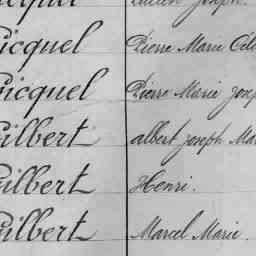 icquel Lucien Joseph.
icquel Pierre Marie Cél
icquel Pierre Marie Jose
ilbert albert Joseph Ma
uilbert Henri.
uilbert Marcel Marie.